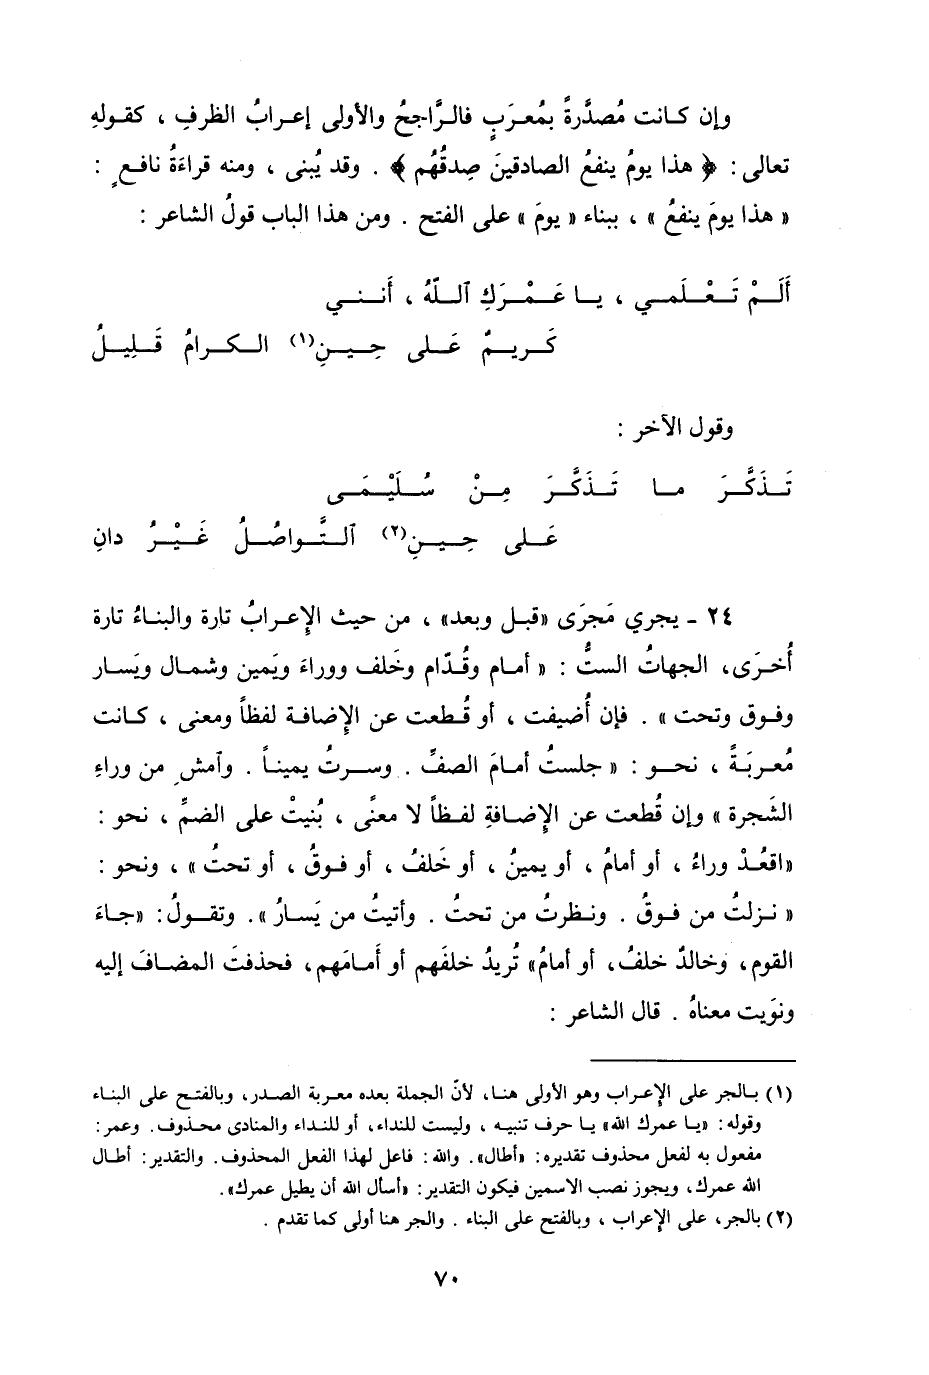 وإن كانت مُصدَّرةً بمُعرَبٍ فالرَّاجحُ والأولى إعرابُ الظرفِ ، كقولهِ
تعالى : ﴿ هذا يومُ ينفعُ الصادقينَ صِدقُهُم ﴾ . وقد يُبنى ، ومنه قراءَةُ نافعٍ :
« هذا يومَ ينفعُ » ، ببناء « يومَ » على الفتح . ومن هذا الباب قولُ الشاعر :
أَلَمْ تَعْلَمي ، يا عَمْرَكِ ٱللّهُ ، أَنني
كَريمٌ عَلى حِينِ(١) الكرامُ قَلِيلُ
وقول الآخر :
تَذَكَّرَ ما تَذَكَّرَ مِنْ سُلَيْمَى
عَلى حِينِ(٢) ٱلتَّواصُلُ غَيْرُ دانِ
٢٤ - يجري مَجرَى «قبل وبعد» ، من حيث الإعرابُ تارة والبناءُ تارة
أُخرَى، الجهاتُ الستُّ : « أمام وقُدّام وخَلف ووراءَ ويَمين وشمال ويَسار
وفوق وتحت » . فإن أُضيفت ، أو قُطعت عن الإضافة لفظاً ومعنى ، كانت
مُعربَةً ، نحو : « جلستُ أمامَ الصفِّ . وسرتُ يميناً . وٱمشِ من وراءِ
الشَجرة » وإن قُطعت عن الإضافةِ لفظاً لا معنًى ، بُنيتْ على الضمِّ ، نحو :
«اقعُدْ وراءُ ، أو أمامُ ، أو يمينُ ، أو خَلفُ ، أو فوقُ ، أو تحتُ » ، ونحو :
« نزلتُ من فوقُ . ونظرتُ من تحتُ . وأتيتُ من يَسارُ ». وتقولُ: «جاءَ
القوم، وخالدٌ خلفُ، أو أمامُ» تُريدُ خلفَهم أو أَمامَهم، فحذفتَ المضافَ إليه
ونوَيت معناهُ . قال الشاعر :
(١) بالجر على الإعراب وهو الأولى هنا، لأنّ الجملة بعده معربة الصدر، وبالفتح على البناء
وقوله: «يا عمرك الله» يا حرف تنبيه ، وليست للنداء، أو للنداء والمنادى محذوف. وعمر:
مفعول به لفعل محذوف تقديره: «أطال». والله: فاعل لهذا الفعل المحذوف. والتقدير: أطال
الله عمرك، ويجوز نصب الاسمين فيكون التقدير: «أسأل الله أن يطيل عمرك».
(٢) بالجر، على الإعراب ، وبالفتح على البناء . والجر هنا أولى كما تقدم .
٧٠